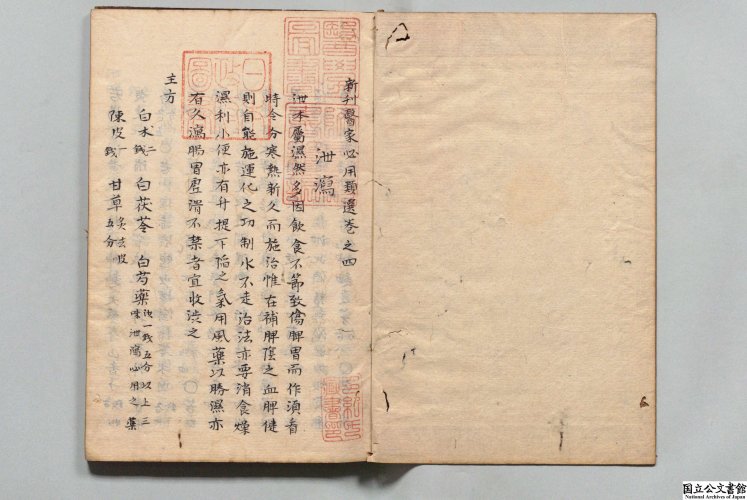 新刊醫家必用類選卷之四
泄瀉
泄本屬濕然多因飲食不節致傷脾胃而作須看
時令分寒熱新久而施治惟在補脾陰之血脾健
則自能施運化之功制水不走治法亦要消食燥
濕利小便亦有升提下陷之氣用風藥以勝濕亦
有久瀉腸胃虛滑不禁者宜收澁之
主方
白术二錢 白茯苓 白芍藥 一錢五分以上三味泄瀉必用之藥
陳皮一錢 甘草炙去皮五分
国立公文書館
National Archives of Japan